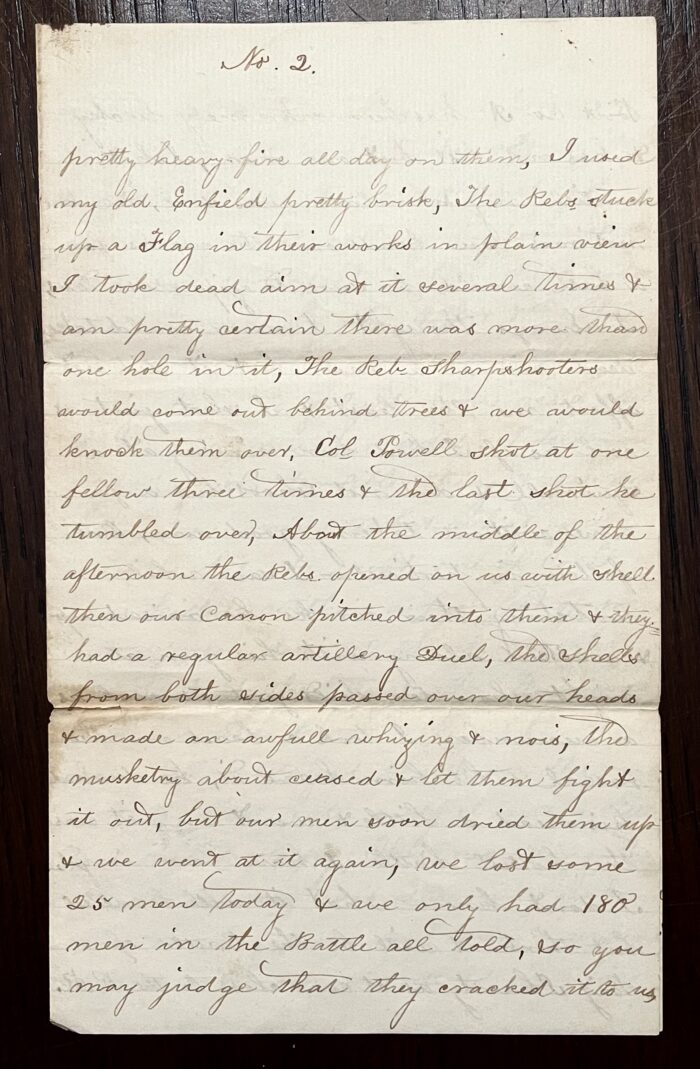 No. 2.
pretty heavy fire all day on them, I used
my old Enfield pretty brisk, The Rebs stuck
up a Flag in their works in plain view
I took dead aim at it several times &
am pretty certain there was more than
one hole in it, The Reb Sharpshooters
would come out behind trees & we would
knock them over, Col Powell shot at one
fellow three times & the last shot he
tumbled over, About the middle of the
afternoon the Rebs. opened on us with shell.
then our Canon pitched into them & they=
had a regular artillery Duel, the shells
from both sides passed over our heads
& made an awfull whizing & nois, the
musketry about ceased & let them fight
it out, but our men soon dried them up
& we went at it again, we lost some
25 men today & we only had 180
men in the Battle all told, so you
may judge that they cracked it to us